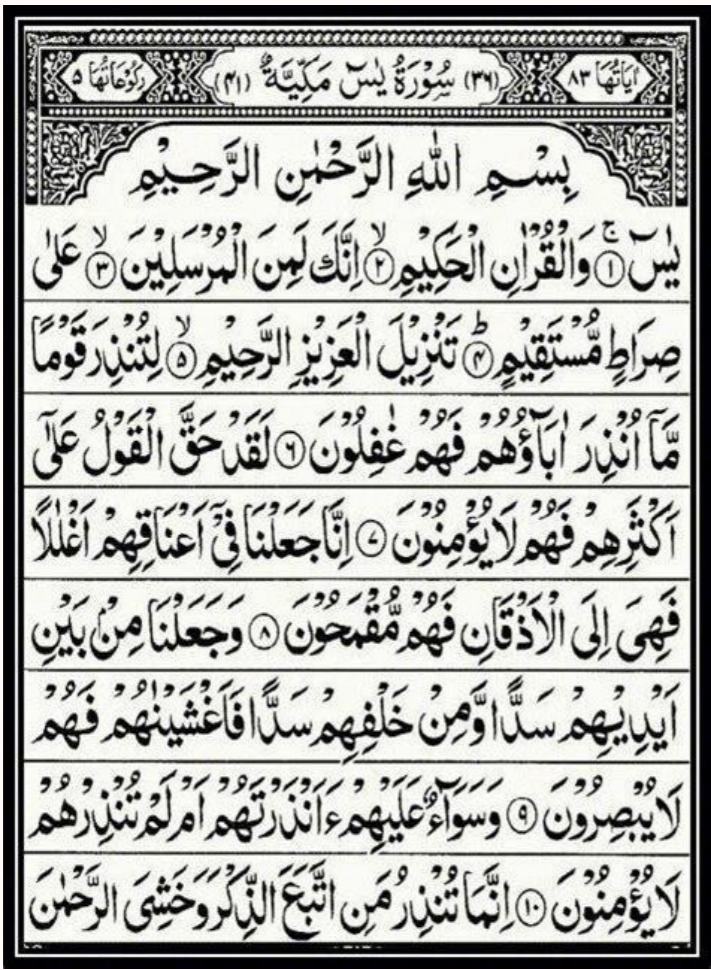 اٰيَاتُهَا ٨٣ (٣٦) سُوْرَةُ يٰسٓ مَكِّيَّةٌ (٤١) رُكُوْعَاتُهَا ٥
بِسْمِ اللّٰهِ الرَّحْمٰنِ الرَّحِيْمِ
يٰسٓ ۚ ﴿١﴾ وَالْقُرْاٰنِ الْحَكِيْمِ ۙ ﴿٢﴾ اِنَّكَ لَمِنَ الْمُرْسَلِيْنَ ۙ ﴿٣﴾ عَلٰى
صِرَاطٍ مُّسْتَقِيْمٍ ؕ ﴿٤﴾ تَنْزِيْلَ الْعَزِيْزِ الرَّحِيْمِ ۙ ﴿٥﴾ لِتُنْذِرَ قَوْمًا
مَّاۤ اُنْذِرَ اٰبَآؤُهُمْ فَهُمْ غٰفِلُوْنَ ﴿٦﴾ لَقَدْ حَقَّ الْقَوْلُ عَلٰٓى
اَكْثَرِهِمْ فَهُمْ لَا يُؤْمِنُوْنَ ﴿٧﴾ اِنَّا جَعَلْنَا فِيْۤ اَعْنَاقِهِمْ اَغْلٰلًا
فَهِىَ اِلَى الْاَذْقَانِ فَهُمْ مُّقْمَحُوْنَ ﴿٨﴾ وَجَعَلْنَا مِنْۢ بَيْنِ
اَيْدِيْهِمْ سَدًّا وَّمِنْ خَلْفِهِمْ سَدًّا فَاَغْشَيْنٰهُمْ فَهُمْ
لَا يُبْصِرُوْنَ ﴿٩﴾ وَسَوَآءٌ عَلَيْهِمْ ءَاَنْذَرْتَهُمْ اَمْ لَمْ تُنْذِرْهُمْ
لَا يُؤْمِنُوْنَ ﴿١٠﴾ اِنَّمَا تُنْذِرُ مَنِ اتَّبَعَ الذِّكْرَ وَخَشِىَ الرَّحْمٰنَ